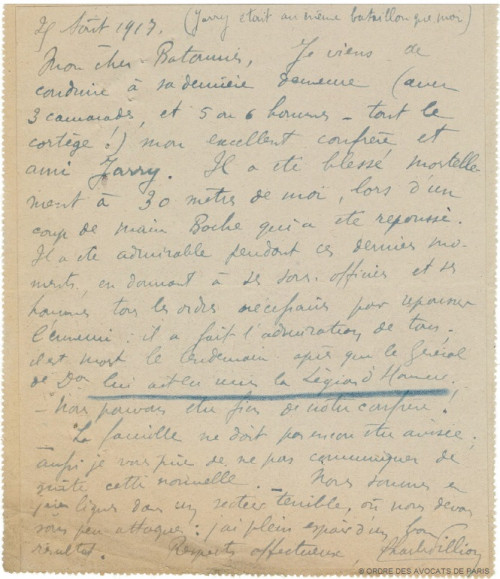 25 Août 1917. (Jarry était au même bataillon que moi)
Mon cher Batonnier, Je viens de
conduire à sa dernière demeure (avec
3 camarades, et 5 ou 6 hommes - tout le
cortège !) mon excellent confrère et
ami Jarry. Il a été blessé mortelle
ment à 30 mètres de moi, lors d'un
coup de main Boche qui a été repoussé.
Il a été admirable pendant ces derniers mo-
ments, en donnant à ses sous-officiers et ses
hommes tous les ordres nécessaires pour repousser
l'ennemi : il a fait l'admiration de tous.
il est mort le lendemain après que le Général
de Don lui ait eu remis la Légion d'Honneur.
- Nous pouvons être fiers de notre confrère !
La famille ne doit pas encore être avisée ;
aussi je vous prie de ne pas communiquer de
suite cette nouvelle. - Nous sommes en
1ères lignes dans un secteur terrible, où nous devons
sous peu attaquer : j'ai plein espoir d'un bon
résultat. Respects affectueux
© ORDRE DES AVOCATS DE PARIS